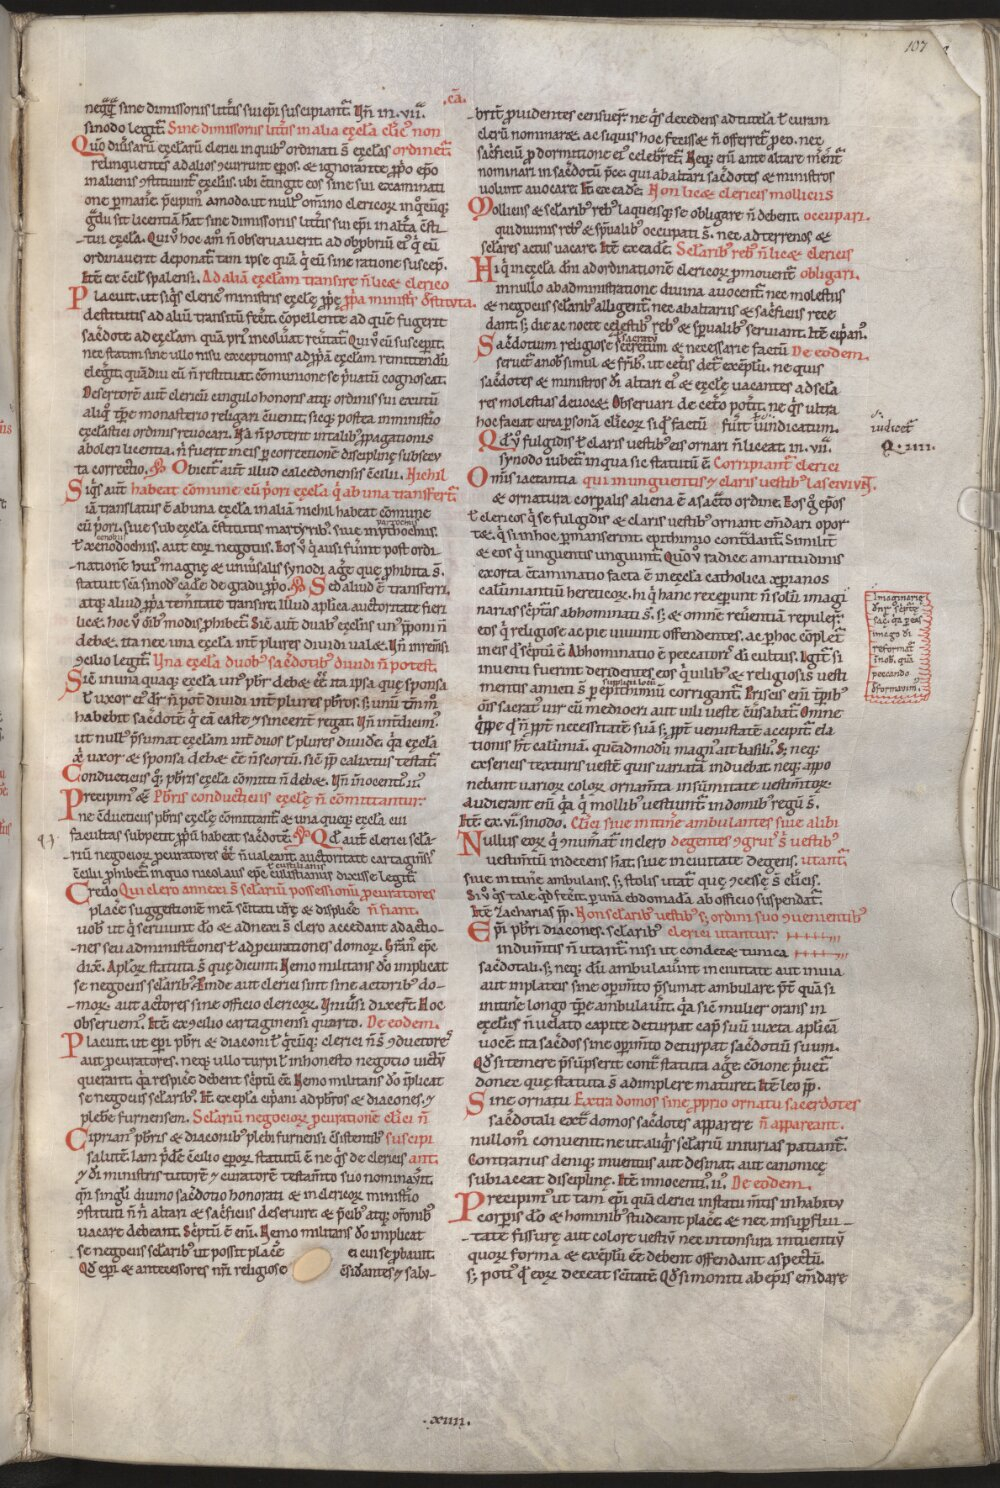 107
.cā.
neq̄q̄ sine dimissoriis litt̄is sui ep̄i suscipiant͛. Uñ in .vii.
sinodo legit͛. Sine dimissoriis litt̄is in alia eccl̄ia cl̄ic̄ non
Quo diu͛sarū eccl̄iarū clerici in quib; ordinati s̄ eccl̄ias ordinet͛.
relinquentes ad alios ꝯcurrunt ep̄os. & ignorante ꝓp̄o ep̄o
in alienis ꝯstituunt͛ eccl̄iis. ubi ꝯtingit eos sine sui examinati
one ꝑmane͛. p̄cipim͛. amodo. ut null͛ om̄ino clericoꝝ in q̄cūq;
g͛du sit licentiā habeat sine dimissoriis litt̄is sui ep̄i in alt͛a ꝯsti
tui eccl̄ia. Qui ū hoc am̄ n̄ obseruauerit ad obp̄briū ei͛ q͛ eū
ordinauerit deponat͛ tam ipse quā q͛ eū sine ratione suscep͛.
Itē ex ꝯcil̄ spalensi. Ad aliā eccl̄iam transire n̄ licet clerico
Placuit. ut siq̄s cleric͛ ministris eccl̄ię ꝓp̄ę ꝓp̄a minist͛r destituta.
destitutis ad aliū transitū fec͛it. cōpellente ad quē fugerit
sac͛dote ad eccl̄iam quā pri͛ incoluerat reu͛tat͛. Qui ū eū suscep͛it.
nec statim sine ullo nisu exceptionis ad ꝓp̄ā eccl̄iam remittendū
eleg͛it. quādiu eū n̄ restituat. cōmunione se p͛uatū cognoscat.
Desertorē aut̄ clericū cingulo honoris atq; ordinis sui exutū
aliq̄ tp̄r̄e monasterio religari ꝯuenit. sicq; postea in ministerio
eccl̄iastici ordinis reuocari. Nā n̄ poterit in talib; ꝓpagationis
aboleri licentia. n̄ fuerit in eis ꝑ correctionē disciplinę subsecu
ta correctio. Obicit͛ aut̄ illud calcedonensis ꝯcilii. Nichil
Siq̄s aut̄ habeat cōmune cū p͛ori eccl̄ia q͛ ab una transfert͛.
iā translatus ē ab una eccl̄ia in aliā nichil habeat cōmune
cū p͛ori. siue sub eccl̄ia ꝯstitutis martyrib;. siue in ptochoeiis.
ł xenodochiis. aut eoꝝ negotiis. Eos ū q͛ ausi fu͛int post ordi
natione hui͛ magnę & uniu͛salis synodi ag͛e quę ꝓhibita s̄.
statuit sc̄a sinod͛ cad͛e de gradu ꝓp̄o. Sed aliud ē transferri
atq; aliud ꝓp̄a tem͛itate transire. Illud ap̄lica auctoritate fieri
licet. hoc ū om̄ib; modis ꝓhibet͛. Sic̄ aut̄ duab; eccl̄iis un͛ p̄poni n̄
debet. ita nec una eccl̄ia int͛ plures diuidi ualet. Uñ in remēsi
ꝯcilio legit͛. Una eccl̄ia duob; sac͛dotib; diuidi n̄ potest.
Sic̄ in una quaq; eccl̄ia un͛ pb̄r debet eē ita ipsa quę sponsa
ł uxor ei͛ d͛r n̄ pot̄ diuidi int͛ plures pb̄ros. s; unū tm̄m͛
habebit sac͛dotē q͛ eā caste ⁊ sincerit͛ regat. Uñ int͛dicim͛.
ut null͛ p̄sumat eccl̄iam int͛ duos ł plures diuide͛. q͛a eccl̄ia
x̄ uxor & sponsa debet eē n̄ scortū. sic̄ p̄p̄ calixtus testat͛.
Conducticiis q͛; pb̄ris eccl̄ia cōmitti n̄ debet. Uñ innocenti͛ .ii.
Precipim͛ &c̄. Pb̄ris conducticiis eccl̄ię n̄ committantur
ne ꝯducticiis pb̄ris eccl̄ię cōmittant͛ & una queq; eccl̄ia cui
facultas subpetit ꝓp̄ū habeat sac͛dotē. Qd̄ aut̄ clerici secla-
riū negocioꝝ ꝓcuratores eē n̄ ualeant. auctoritate cartaginēs
ꝯcilii ꝓhibet͛. in quo nicolaus ep̄c eustitianus dixisse legit͛.
Credo Qui clero annexi s̄ seclariū possessionū ꝓcuratores
place͛ suggestionē meā sc̄itati ur̄ę & displice͛ n̄ fiant.
uob̄ ut q͛ seruunt d̄o & adnexi s̄ clero accedant ad actio-
nes seu administ͛tiones ł ad ꝓcurationes domoꝝ. Grat͛ ep̄c
dix̄. Apl̄oꝝ statuta s̄ quę dicunt. Nemo militans d̄o implicat
se negociis seclarib;. Inde aut clerici sint sine actorib; do-
moꝝ aut actores sine officio clericoꝝ. Uniu͛si dixer̄t. Hoc
obseruem͛. Itē ex ꝯcilio cartaginensi quarto. De eodem.
Placuit. ut ep̄i pb̄ri & diaconi ł q͛cūq; clerici n̄ s̄ ꝯductores
aut ꝓcuratores. neq; ullo turpi ł inhonesto negotio uictū
querant. q͛a respice͛ debent sc͛ptū ē. Nemo militans d̄o īplicat
se negociis seclarib;. Itē ex epl̄a cip̄ani ad pb̄ros & diacones. ⁊
plebē furnensem. Seclariū negocioꝝ ꝓcurationē cl̄ici n̄
Ciprian͛ pb̄ris & diaconib; plebi furnensi ꝯsistentib; suscipi
salutē. Iam p͛dē ꝯcilio ep̄oꝝ statutū ē ne q͛s de clericis ant.
⁊ d̄i ministris tutorē ⁊ curatorē testam̄to suo nominau͛it.
qn̄ singl̄i diuino sac͛dotio honorati & in clericoꝝ ministerio
ꝯstituti n̄ n̄ altari & sac͛ficiis deseruire. & p͛cib; atq; or̄onib;
uacare debeant. Sc͛ptū ē enī. Nemo militans d̄o implicat
se negociis seclarib; ut possit place͛ ei cui se ꝓbauit.
Qd̄ ep̄i & antecessores nr̄i religiose ꝯsid͛antes ⁊ salu-
brit͛ ꝓuidentes censuer̄. ne q͛s decedens ad tutelā ł curam
clericū nominaret. ac si quis hoc fecisset n̄ offerret͛ ꝓ eo. nec
sac͛ficiū ꝓ dormitione ei͛ celebret͛. Neq; enī ante altare m͛ent͛
nominari in sac͛dotū p͛ce. qui ab altari sac͛dotes & ministros
uolunt auocare. Itē ex eadē. Non licet clericis molliciis
Molliciis & seclarib; reb; laqueisq; se obligare n̄ debent. occupari.
qui diuinis reb; & sp̄ualib; occupati s̄. nec ad terrenos &
seclares actus uacare. Itē ex eadē. Seclarib; reb; n̄ licet clericis
Hi q͛ in eccl̄ia dn̄i ad ordinationē clericoꝝ ꝓmouent͛ obligari.
in nullo ab administratione diuina auocent͛. nec molestiis
& negociis seclarib; alligent͛. nec ab altariis & sac͛ficiis rece
dant. s; die ac nocte celestib; reb; & sp̄ualib; seruiant. Itē cip̄ani.
Sacerdotium religiose secretum & necessarie factū De eodem.
seruet͛ a nob̄ simul & fr̄ib;. ut cet͛is det͛ exēplū. ne quis
sac͛dotes & ministros d̄i altari ei͛ & eccl̄ię uacantes ad secla
res molestias deuocet. Obseruari de cet͛o pot͛it. ne q͛s ultra
hoc faciat circa ꝑsonā cl̄icoꝝ si q͛ factū fu͛it uindicatum.
Qd̄ ū fulgidis ł claris uestib; eis ornari n̄ liceat. in .vii.
synodo iubet͛. in qua sic statutū ē. Corripiant͛ clerici
Om̄is iactantia qui in unguentis ⁊ claris uestib; lasciuiūt.
& ornatura corꝑalis aliena ē a sac͛to ordine. Eos q͛ ep̄os
ł clericos q͛ se fulgidis & claris uestib; ornant em̄dari opor
tet. q͛ si in hoc ꝑmanserint epithimio cont͛dant͛. Similit͛
& eos q͛ unguentis ungunt͛. Qm̄ ū radice amaritudinis
exorta ꝯtaminatio facta ē in eccl̄ia catholica xp̄ianos
calūniantiū hereticoꝝ. hi q͛ hanc receperunt n̄ solū imagi
narias sc͛ptas abhominati s̄. s; & omnē reu͛entiā repuler̄.
eos q͛ religiose ac pie uiuunt offendentes. ac ꝑ hoc cōplet͛
in eis q͛ sc͛ptū ē. Abhominatio ē peccatori d̄i cultus. Igit͛ si
inuenti fuerint deridentes eos q͛ uilib; & religiosis uesti
mentis amicti s̄ ꝑ epithimiū corrigant͛. Priscis enī tp̄rib;
om̄s sacrat͛ uir cū mediocri aut uili ueste ꝯuersabat͛. Omne
q͛pe q͛ n̄ ꝓpt͛ necessitatē suā s; ꝓpt͛ uenustatē accipit͛ ela
tionis h̄t calūniā. quēadmodū magn͛ ait basili͛. S; neq;
ex sericis texturis uestē quis uariatā induebat. neq; appo
nebant uarioꝝ coloꝝ ornam̄ta in sūmitate uestim̄toꝝ.
Audierant enī q͛a q͛ mollib; uestiunt͛ in domib; regū s̄.
Itē. ex .vi. sinodo. Cl̄ici siue in itine͛ ambulantes siue alibi
Nullus eoꝝ q͛ ꝯnum͛at͛ in clero degentes ꝯgruis uestib;
uestim̄tū indecens h̄at. siue in ciuitate degens. utant͛.
siue in itine͛ ambulans. s; stolis utat͛ quę ꝯcessę s̄ cl̄icis.
Si ū q͛s tale qd̄ fec͛it. ꝑ unā ebdomadā ab officio suspendat͛.
Itē Zacharias p̄p̄. Non seclarib; uestib; s; ordini suo ꝯuenientib;
Ep̄i pb̄ri diacones. seclarib; clerici utantur.
indum̄tis n̄ utant͛. nisi ut condecet tunica
sac͛dotali. s; neq; dū ambulau͛int in ciuitate aut in uia
aut in plateis sine oꝑim̄to p̄sumat ambulare. p̄t͛ quā si
in itine͛ longo tp̄r̄e ambulau͛it. q͛a sic̄ mulier orans in
eccl̄iis n̄ uelato capite deturpat cap̄ suū iuxta ap̄licā
uocē. ita sac͛dos sine oꝑim̄to deturpat sac͛dotiū suum.
Qd̄ si temere p̄sūpserit cont͛ statuta ag͛e cōione p͛uet͛.
donec quę statuta s̄ adimplere maturet. Itē leo p̄p̄.
Sine ornatu Extra domos sine ꝓprio ornatu sacerdotes
sac͛dotali ext͛ domos sac͛dotes apparere n̄ appareant.
nullom͛ conuenit. ne ut aliq̄s seclariū iniurias patiant͛.
Contrarius deniq; inuentus aut desinat. aut canonicę
subiaceat disciplinę. Itē innocenti͛ .ii. De eodem.
Precipim͛ ut tam ep̄i quā clerici in statu m̄tis in habitu
corꝑis d̄o & hominib; studeant place͛. & nec in suꝑflui-
tate fissurę aut colore uestiū nec in tonsura intuentiū
quoꝝ forma & exēplū eē debent offendant aspectū.
s; poti͛ q͛ eoꝝ deceat sc̄itatē. Qd̄ si moniti ab ep̄is em̄dare
iudicet͛
Q. iiii.
Imaginarię
dn̄r sc͛ptę
sac͛. q͛a ꝑ eas
imago d̄i
reformat͛
ī nob̄. quā
peccando
d͛formauim͛.
.xiiii.